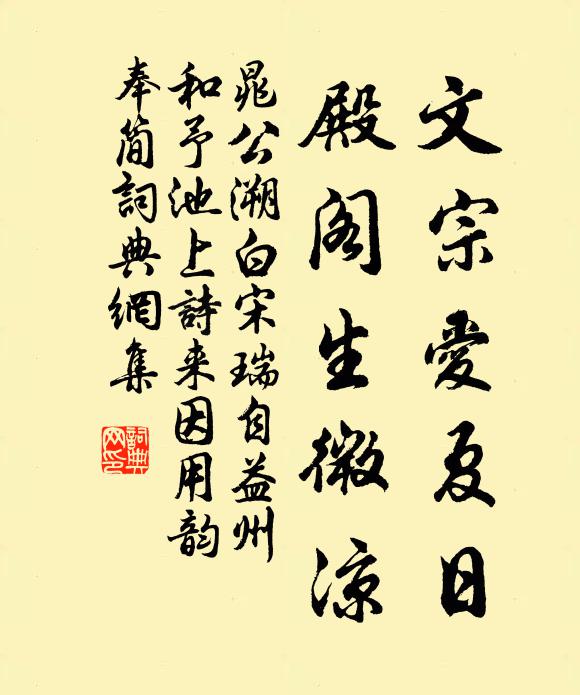 文宗愛夏日
殿阁生微涼
晁公溯白宋瑞自益州
和予池上詩来因用韵
奉简詞典網集
詞典
网印